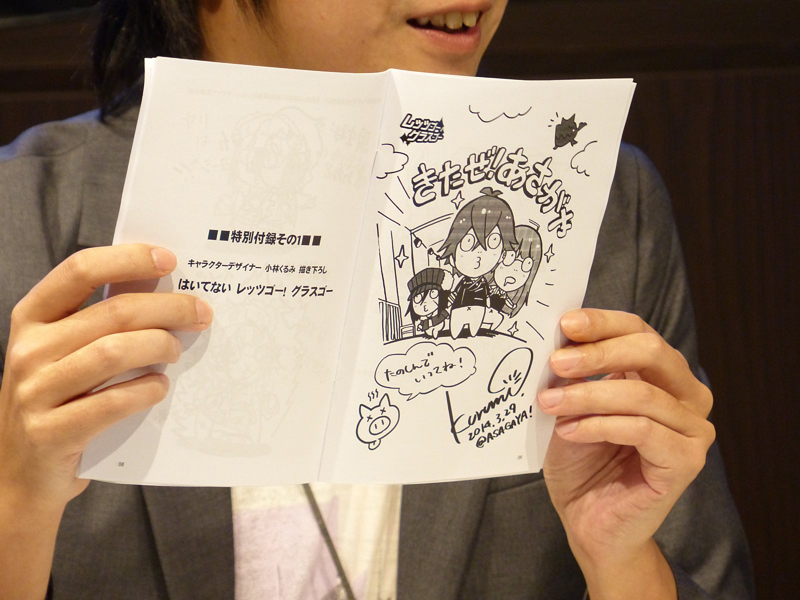 ■■特別付録その1■■
キャラクターデザイナー 小林くるみ 描き下ろし
はいてない レッツゴー! グラスゴー
38
レッツゴー
グラスゴー
きたぜ!あさがや
たのしんで
いってね!
Kurumi
2014.3.29
@ASAGAYA!